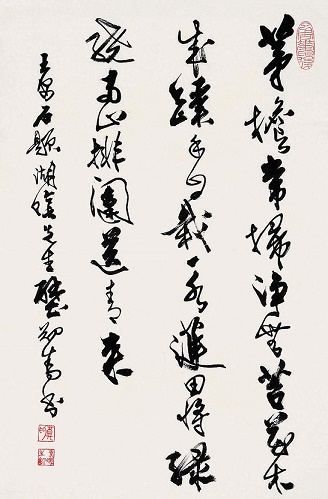 茅檐常掃淨無苔花木
成蹊手自栽一水護田將綠
繞兩山排闥送青來
王安石題湖陰先生壁